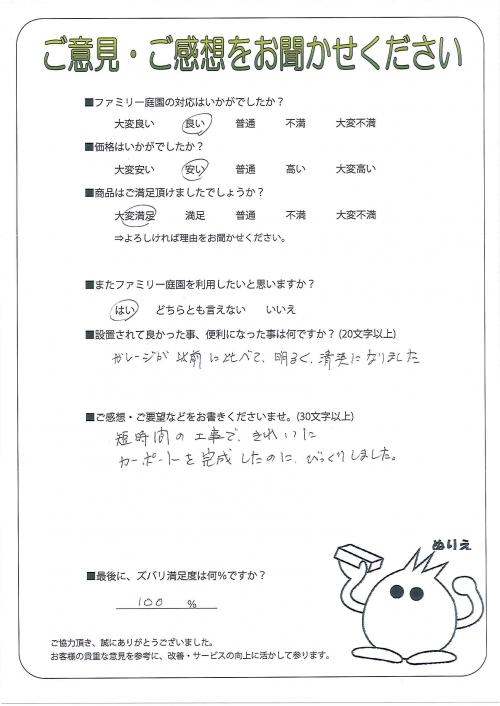 ご意見・ご感想をお聞かせください
■ファミリー庭園の対応はいかがでしたか？
大変良い 良い 普通 不満 大変不満
■価格はいかがでしたか？
大変安い 安い 普通 高い 大変高い
■商品はご満足頂けましたでしょうか？
大変満足 満足 普通 不満 大変不満
⇒よろしければ理由をお聞かせください。
■またファミリー庭園を利用したいと思いますか？
はい どちらとも言えない いいえ
■設置されて良かった事、便利になった事は何ですか？(20文字以上)
ガレージが以前に比べて、明るく、清楚になりました
■ご感想・ご要望などをお書きくださいませ。(30文字以上)
短時間の工事で、きれいに
カーポートを完成したのに、びっくりしました。
ぬりえ
■最後に、ズバリ満足度は何％ですか？
100 ％
ご協力頂き、誠にありがとうございました。
お客様の貴重な意見を参考に、改善・サービスの向上に活かして参ります。